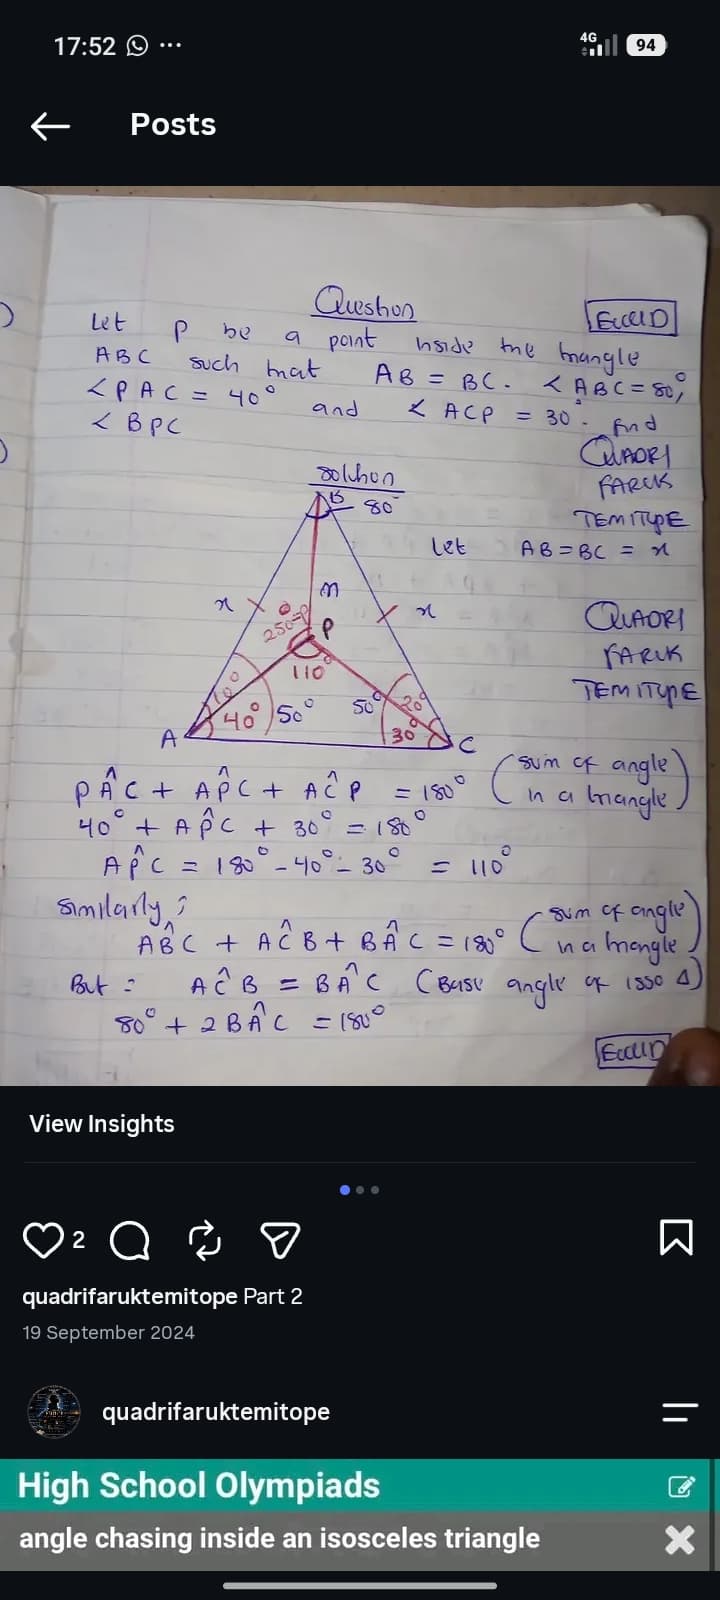 17:52
4G
94
Posts
Question
EUCLID
Let P be a point inside the triangle
ABC such that AB = BC. < ABC = 80°,
< PAC = 40° and < ACP = 30°. find
< BPC
QUADRI
FARUK
TEMITOPE
Solution
B
80°
Let AB = BC = x
x
m
x
250-θ
θ
P
QUADRI
FARUK
TEMITOPE
110°
10°
40°
50°
50°
20°
30°
A
C
PÂC + AP̂C + AĈP = 180° (sum of angle in a triangle)
40° + AP̂C + 30° = 180°
AP̂C = 180° - 40° - 30° = 110°
Similarly;
AB̂C + AĈB + BÂC = 180° (sum of angle in a triangle)
But: AĈB = BÂC (Base angle of isso Δ)
80° + 2BÂC = 180°
EUCLID
View Insights
2
quadrifaruktemitope Part 2
19 September 2024
quadrifaruktemitope
High School Olympiads
angle chasing inside an isosceles triangle